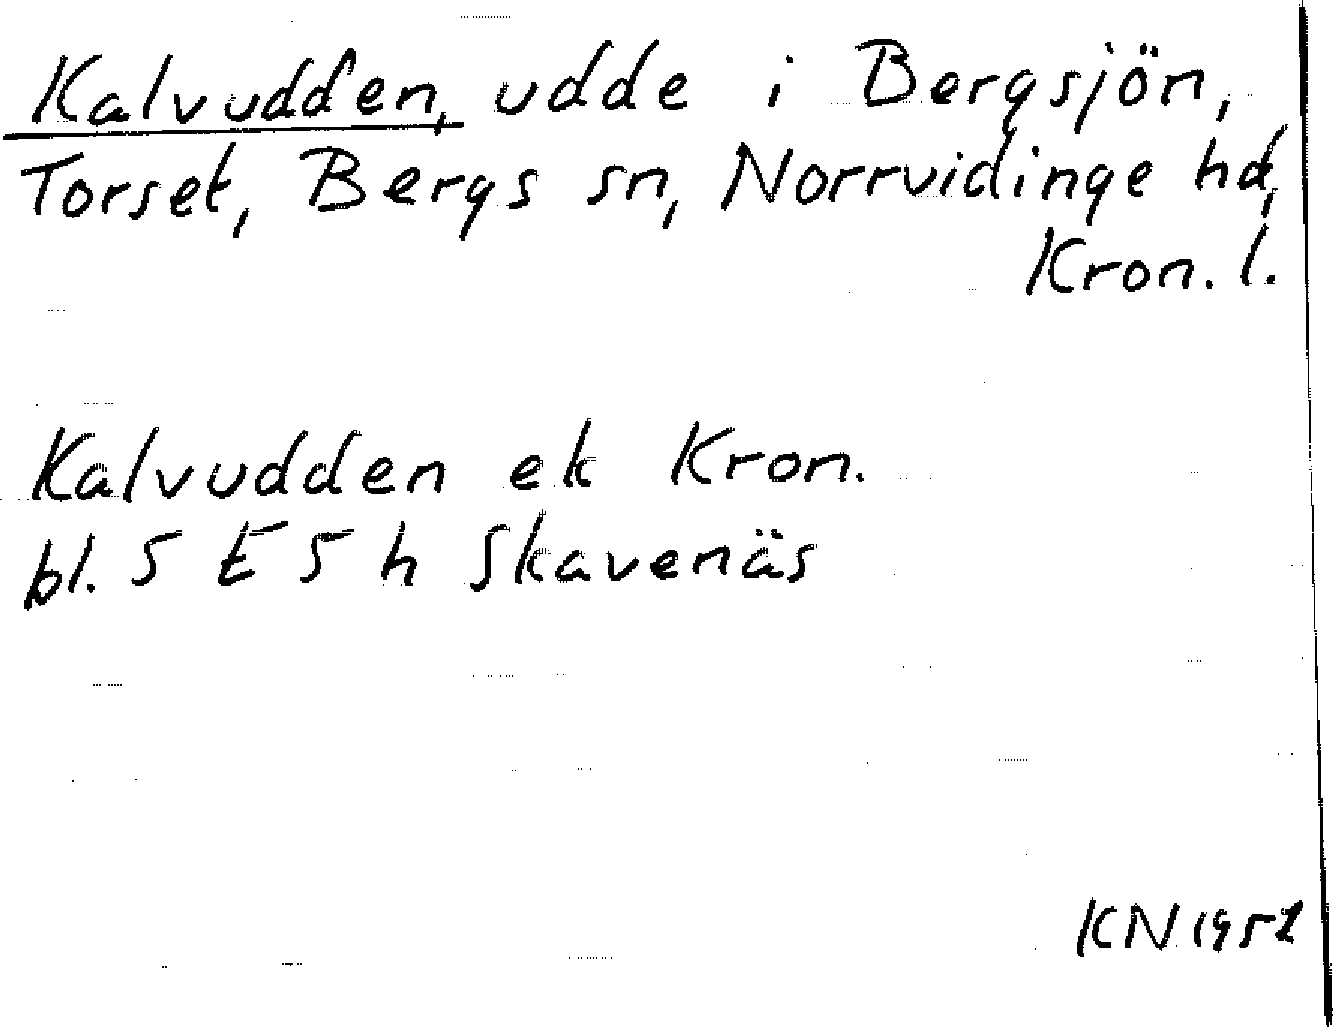 Kalvudden, udde i Bergsjön,
Torset, Bergs sn, Norrvidinge hd,
Kron. l.
Kalvudden ek Kron.
bl. 5 E 5 h Skavenäs
KN 1952